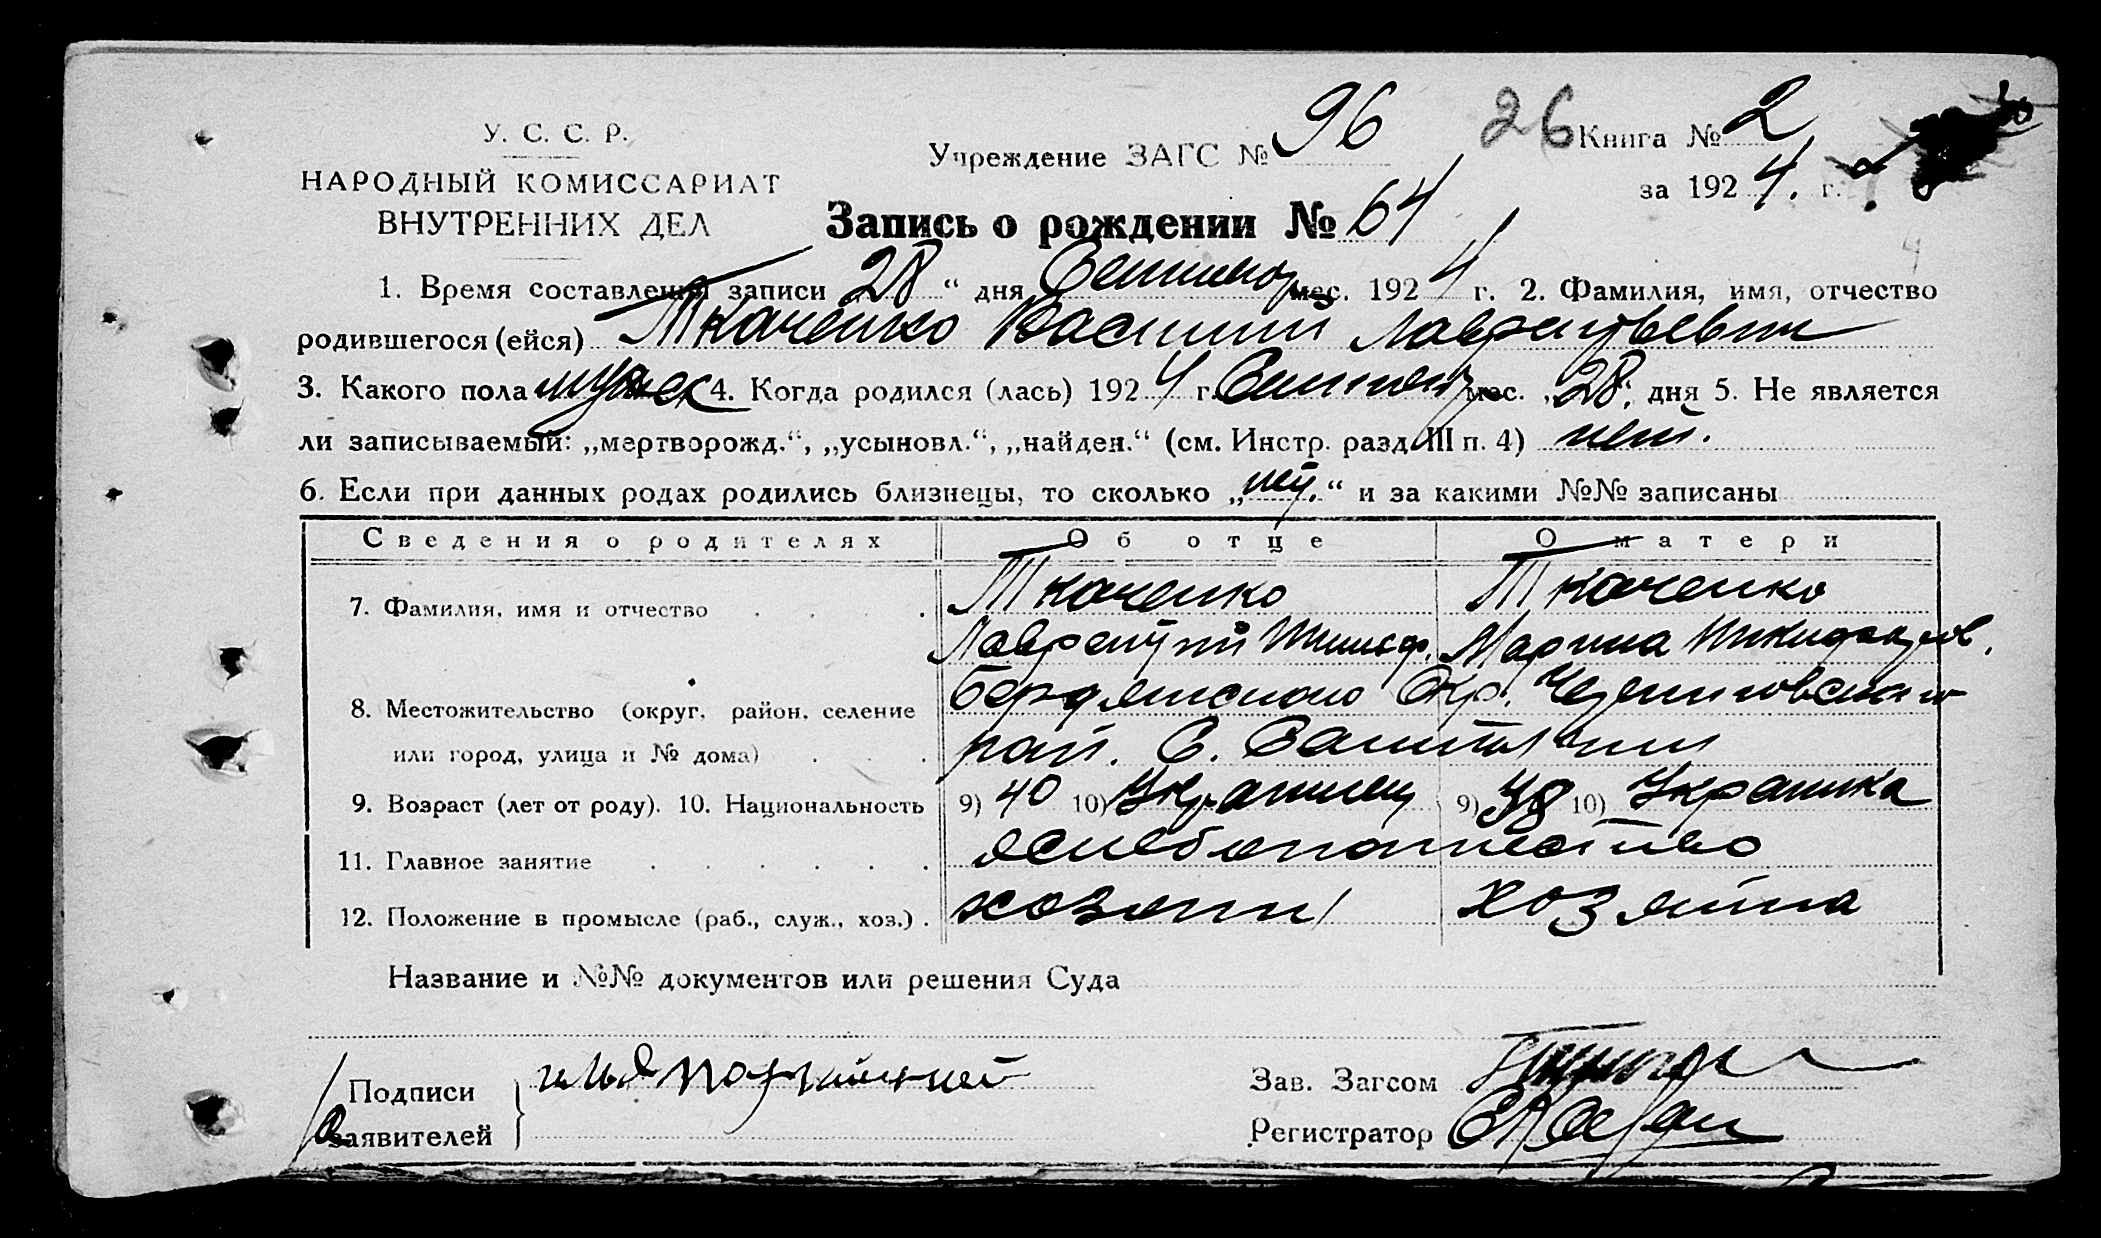 У. С. С. Р.
НАРОДНЫЙ КОМИССАРИАТ
ВНУТРЕННИХ ДЕЛ
Учреждение ЗАГС № 96
26 Книга № 2
за 1924 г.
Запись о рождении № 64
1. Время составления записи „28“ дня мес. 1924 г. 2. Фамилия, имя, отчество
родившегося (ейся) Ткаченко Василий Лаврентьевич
3. Какого пола мужск 4. Когда родился (лась) 1924 г. мес. „28“ дня 5. Не является
ли записываемый: „мертворожд.“, „усыновл.“, „найден.“ (см. Инстр. разд. III п. 4) нет.
6. Если при данных родах родились близнецы, то сколько „нет.“ и за какими №№ записаны
Сведения о родителях Об отце О матери
7. Фамилия, имя и отчество Ткаченко Ткаченко
Лаврентий Марина
8. Местожительство (округ, район, селение Бердянского Окр. Черниговского
или город, улица и № дома) рай. С.
9. Возраст (лет от роду). 10. Национальность 9) 40 10) Украинец 9) 38 10) Украинка
11. Главное занятие хлебопашество
12. Положение в промысле (раб., служ., хоз.) хозяин хозяйка
Название и №№ документов или решения Суда
Подписи
заявителей
Зав. Загсом
Регистратор